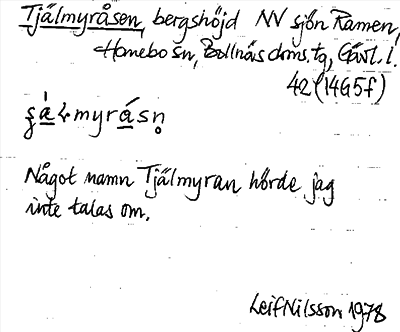 Tjälmyråsen, bergshöjd NV sjön Ramen,
Hanebo sn, Bollnäs doms. tg, Gävl. l.
42 (14G5f)
myrásn̥
Något namn Tjälmyran hörde jag
inte talas om.
Leif Nilsson 1978